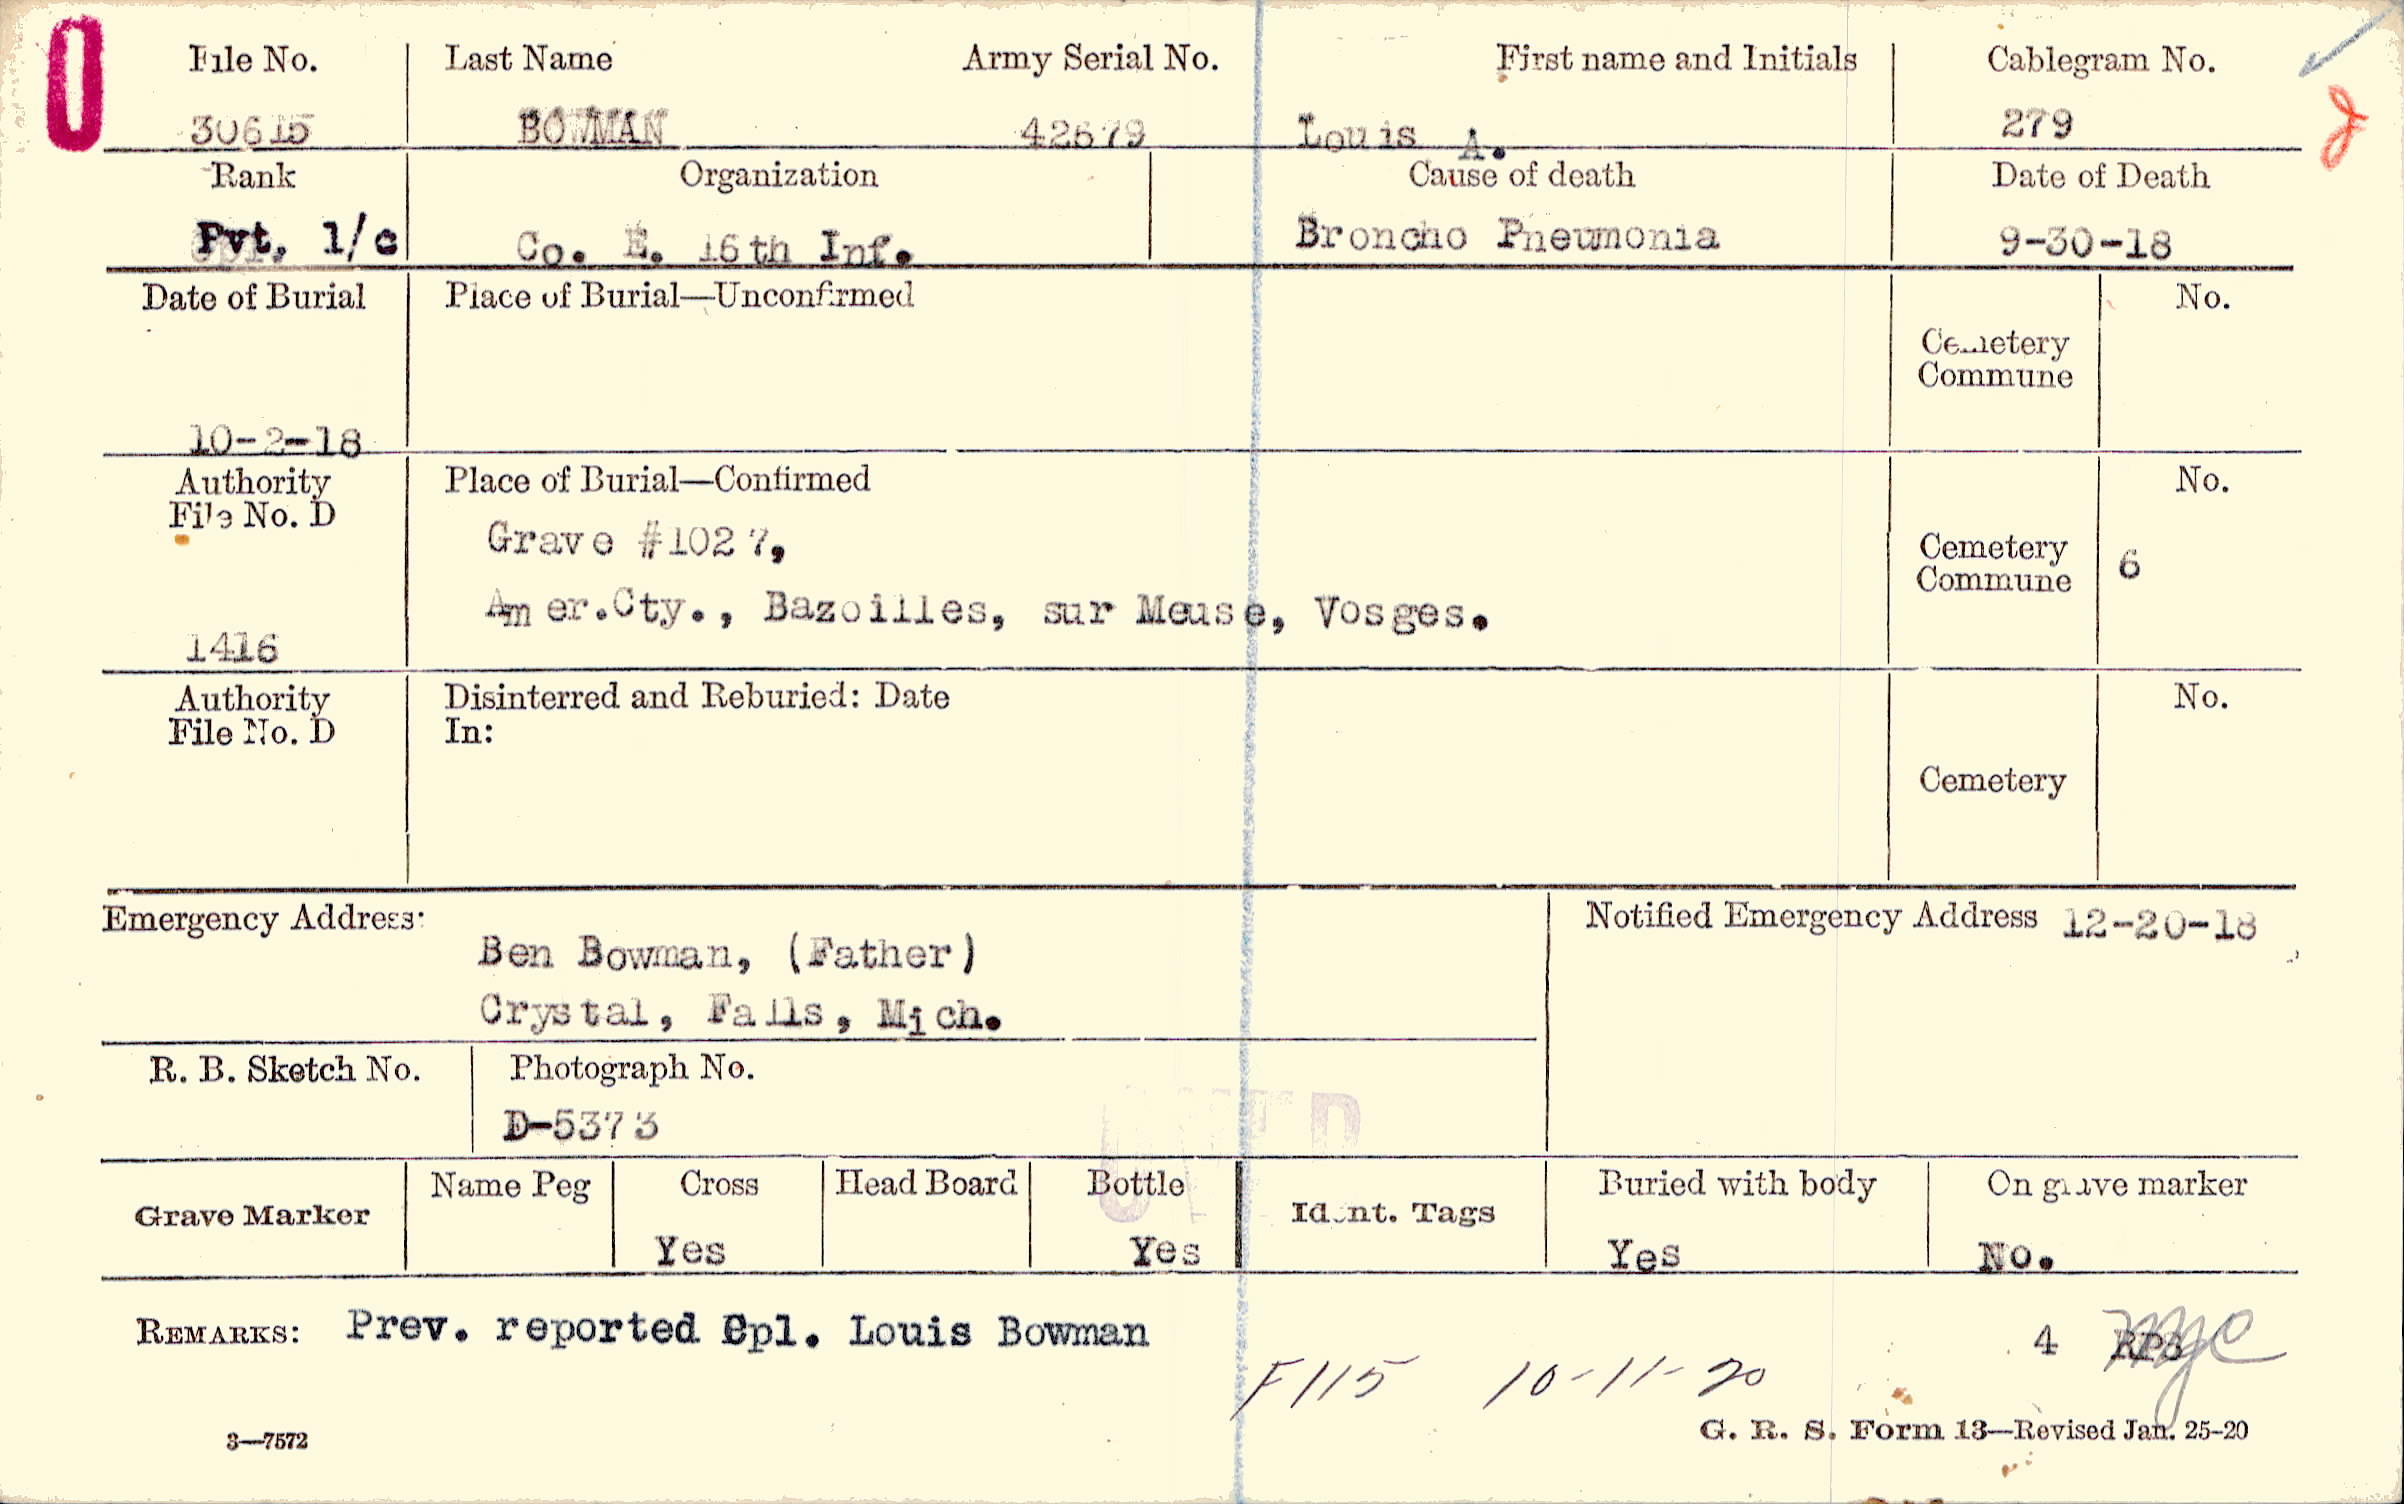 File No. Last Name Army Serial No. First name and Initials Cablegram No.
30615 BOWMAN 42679 Louis A. 279
Rank Organization Cause of death Date of Death
Pvt. 1/c Co. E. 16th Inf. Broncho Pneumonia 9-30-18
Date of Burial Place of Burial—Unconfirmed No.
Cemetery
Commune
10-2-18
Authority Place of Burial—Confirmed No.
File No. D
Grave #1027,
Cemetery
Commune 6
Amer.Cty., Bazoilles, sur Meuse, Vosges.
1416
Authority Disinterred and Reburied: Date No.
File No. D In:
Cemetery
Emergency Address: Notified Emergency Address 12-20-18
Ben Bowman, (Father)
Crystal, Falls, Mich.
R. B. Sketch No. Photograph No.
D-5373
Grave Marker Name Peg Cross Head Board Bottle Ident. Tags Buried with body On grave marker
Yes Yes Yes No.
REMARKS: Prev. reported Cpl. Louis Bowman 4
F115 10-11-20
3—7572 G. R. S. Form 13—Revised Jan. 25-20